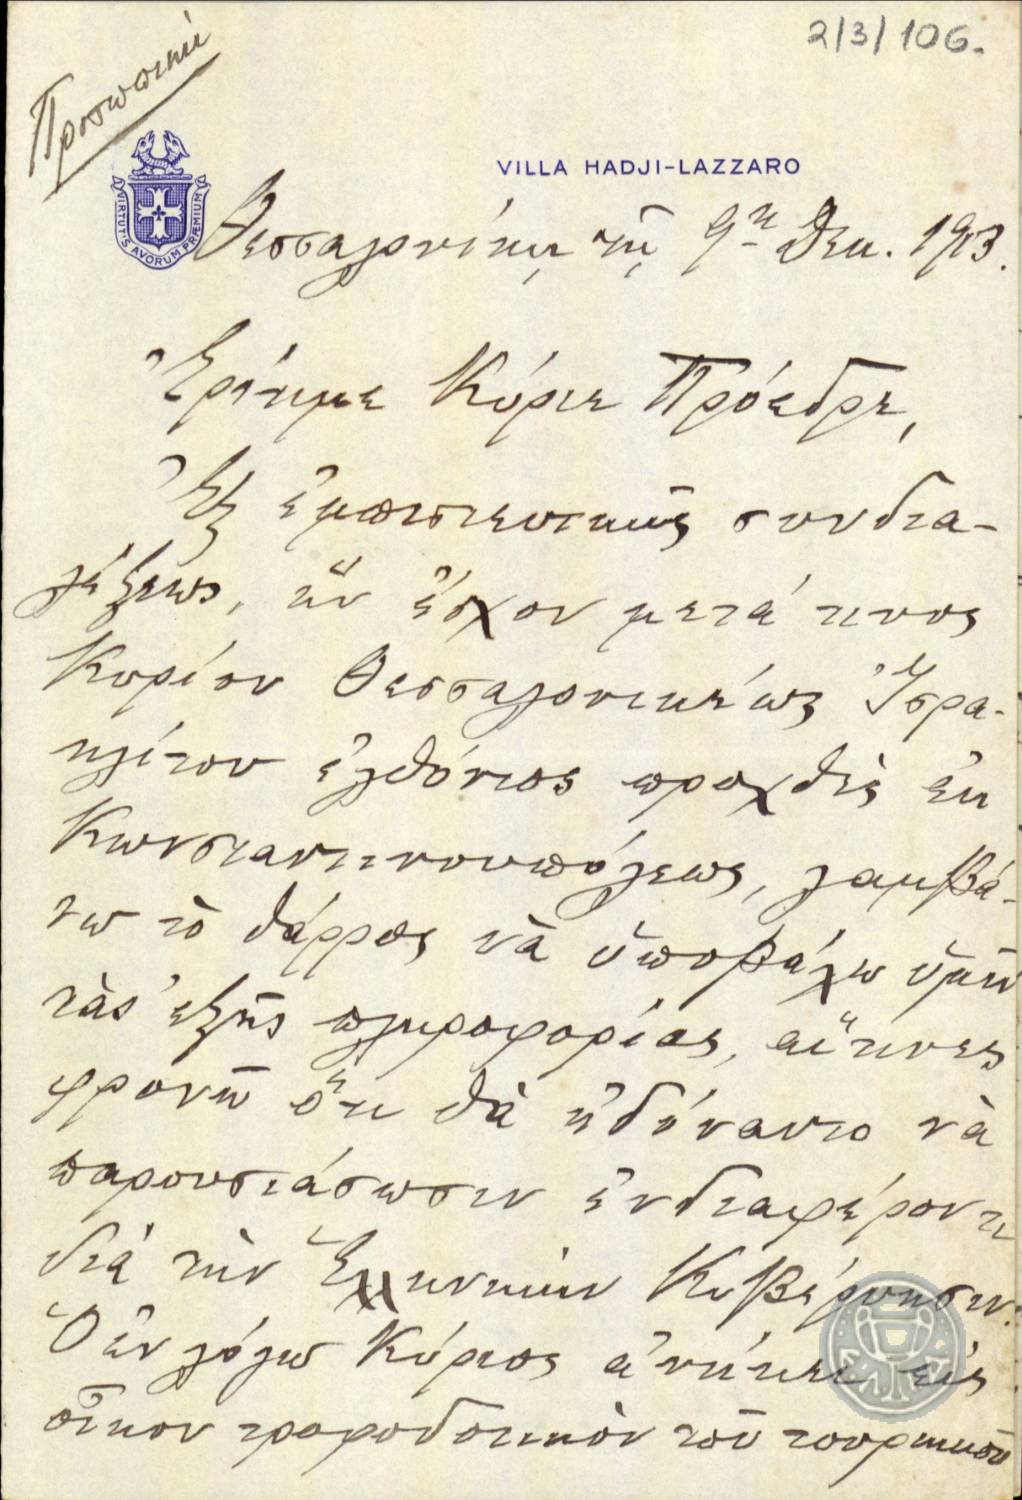 Προσωπική
2/3/106.
VILLA HADJI-LAZZARO
VIRTUTIS AVORUM PRÆMIUM
Θεσσαλονίκη τῇ 9ῃ Δεκ. 1913.
Ἐρίτιμε Κύριε Πρόεδρε,
Ἐξ ἐμπιστευτικῆς συνδια-
λέξεως, ἣν ἔσχον μετά τινος
Κυρίου Θεσσαλονικέως Ἰσρα-
ηλίτου ἐλθόντος προχθὲς ἐκ
Κωνσταντινουπόλεως, λαμβά-
νω τὸ θάρρος νὰ ὑποβάλω ὑμῖν
τὰς ἑξῆς πληροφορίας, αἵτινες
φρονῶ ὅτι θὰ ἠδύναντο νὰ
παρουσιάσωσιν ἐνδιαφέρον τι
διὰ τὴν Ἑλληνικὴν Κυβέρνησιν.
Ὁ ἐν λόγω Κύριος ἀνήκει εἰς
οἶκον τροφοδοτικὸν τοῦ τουρκικοῦ